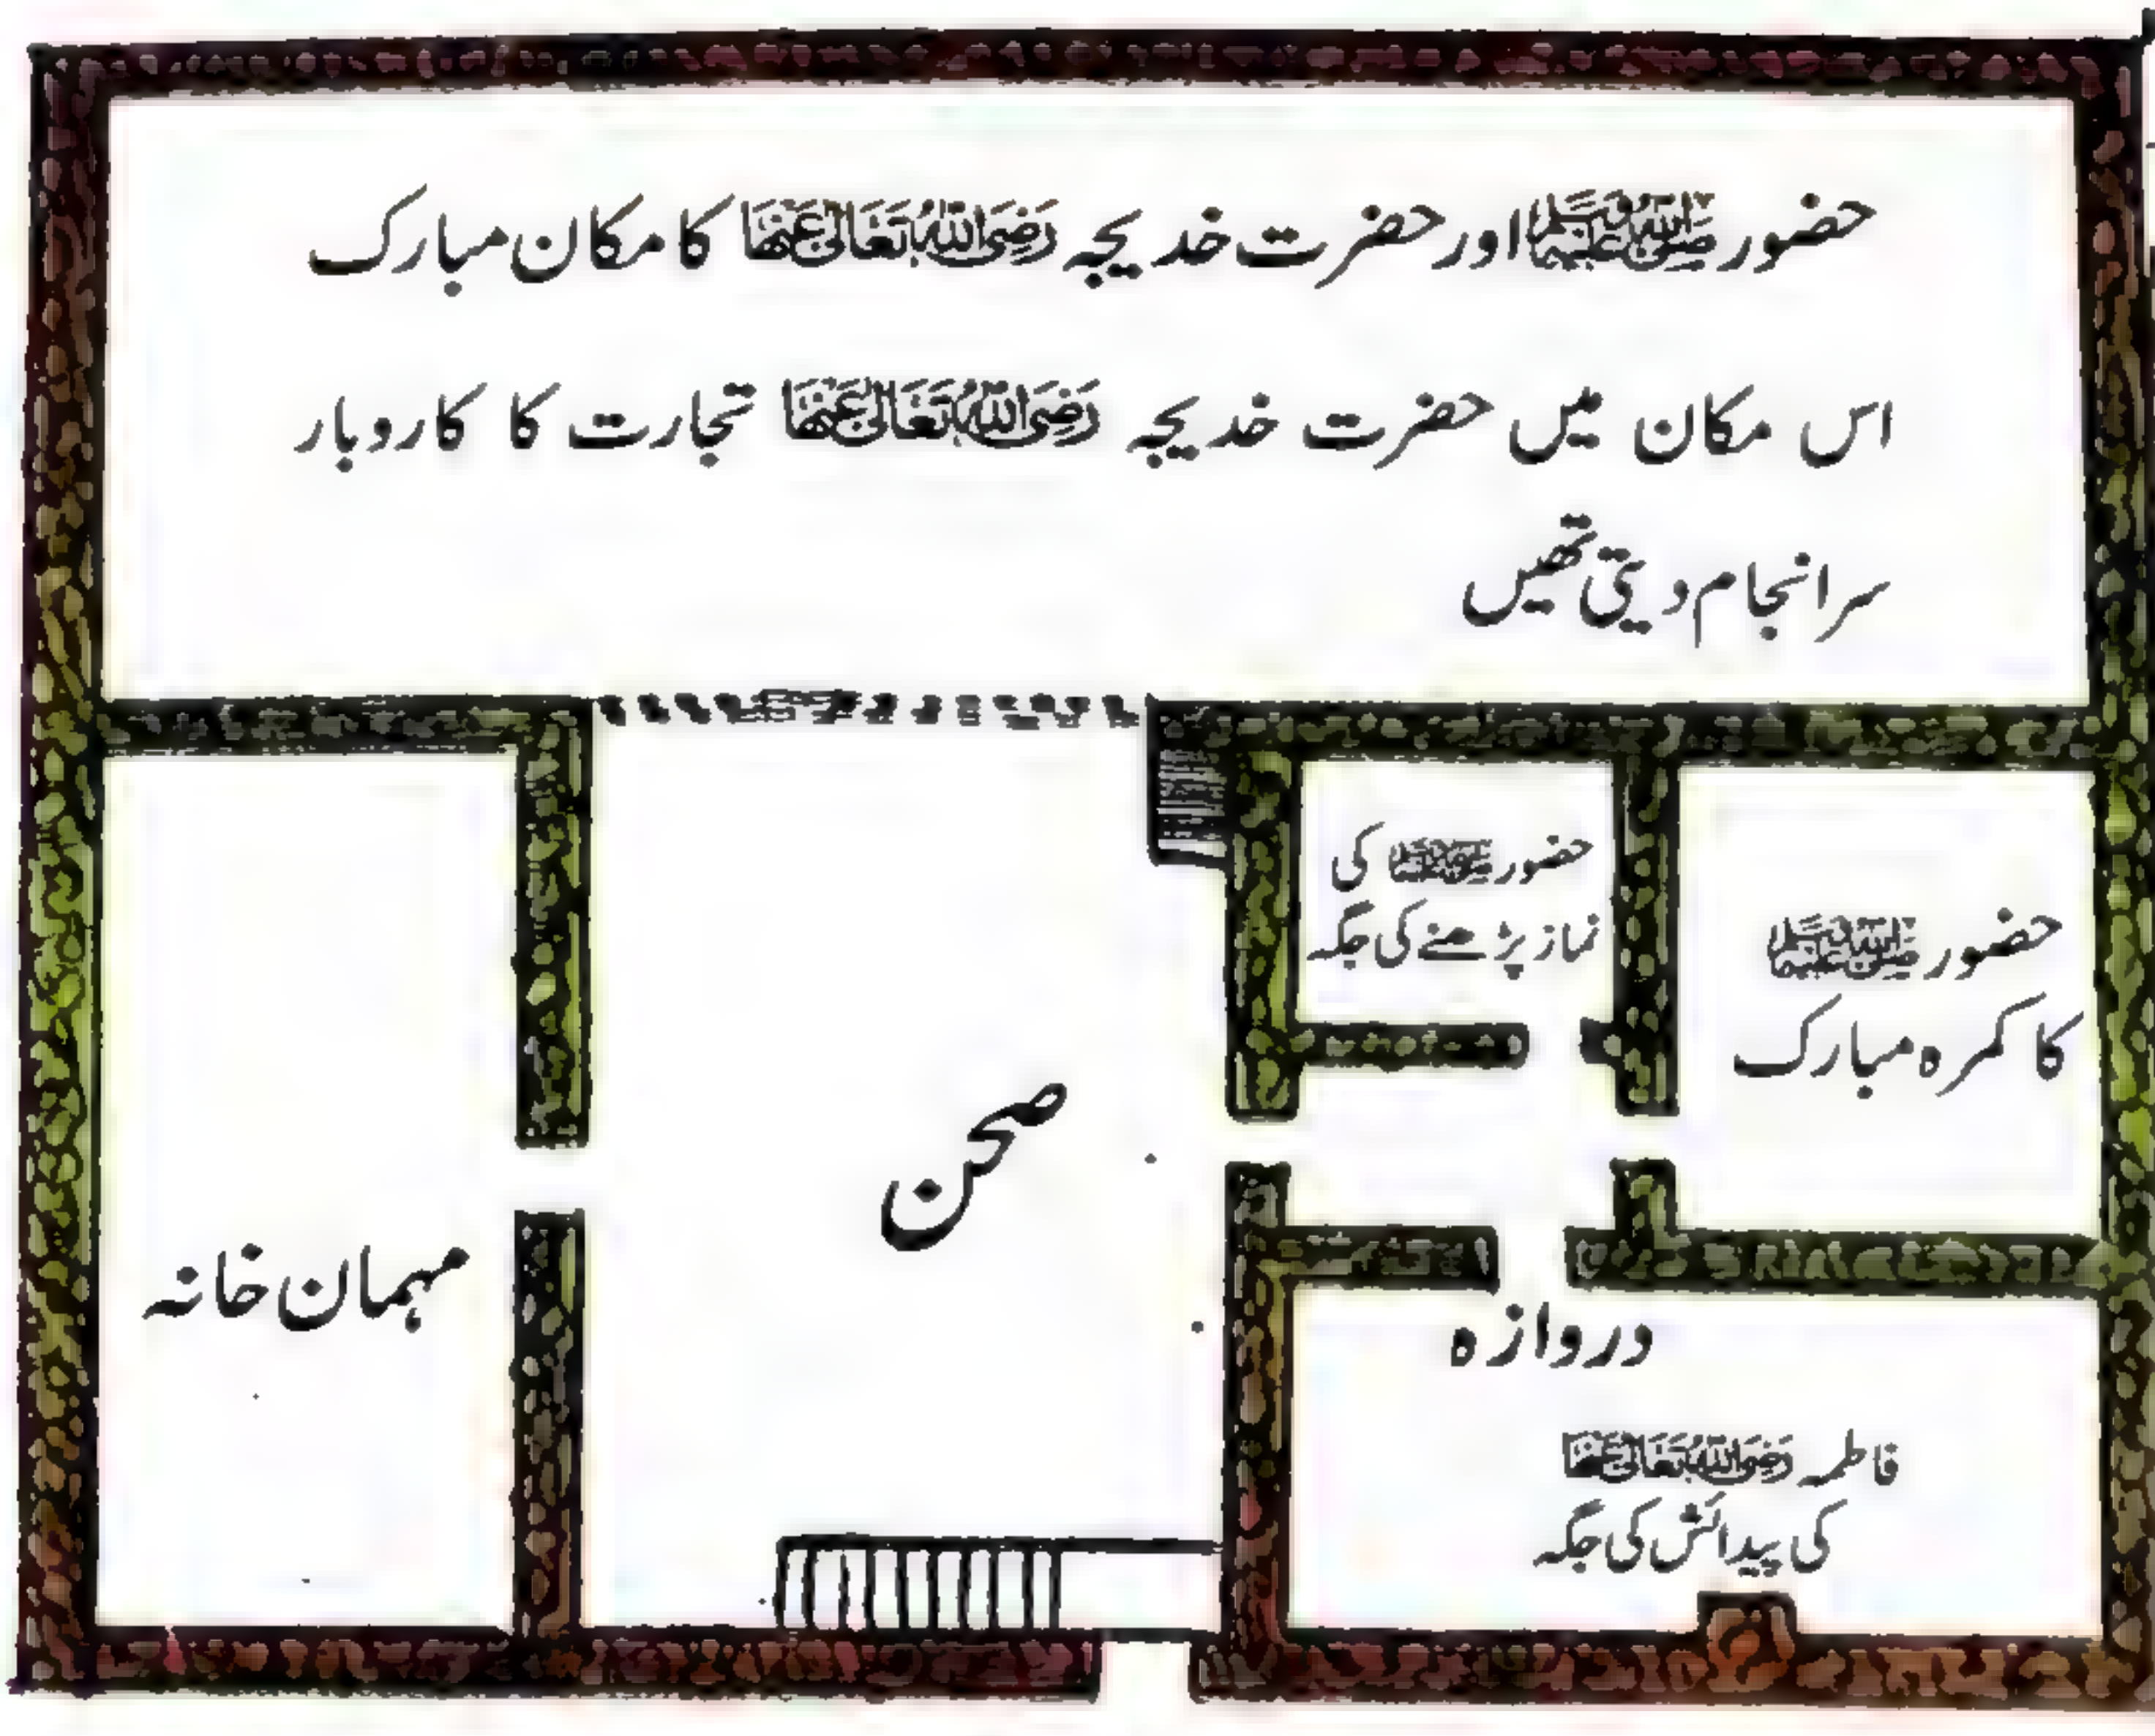 حضور ﷺ اور حضرت خدیجہ رَضِیَ اللہُ تَعَالٰی عَنْھَا کا مکان مبارک
اس مکان میں حضرت خدیجہ رَضِیَ اللہُ تَعَالٰی عَنْھَا تجارت کا کاروبار
سرانجام دیتی تھیں
حضور ﷺ کی
نماز پڑھنے کی جگہ
حضور ﷺ
کا کمرہ مبارک
صحن
مہمان خانہ
دروازہ
فاطمہ رَضِیَ اللہُ تَعَالٰی عَنْھَا
کی پیدائش کی جگہ